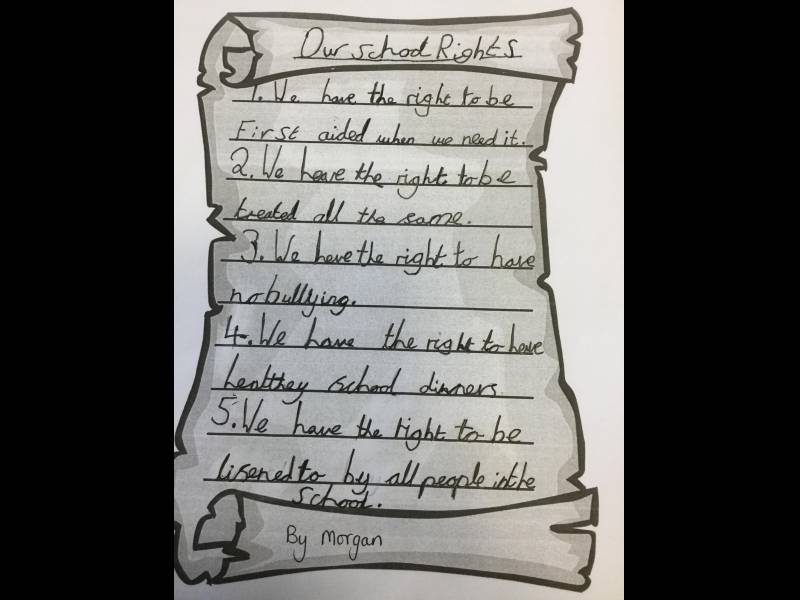 Our school Rights
1. We have the right to be
First aided when we need it.
2. We have the right to be
treated all the same.
3. We have the right to have
no bullying.
4. We have the right to have
healthey school dinners
5. We have the right to be
lisened to by all people in the
school.
By Morgan